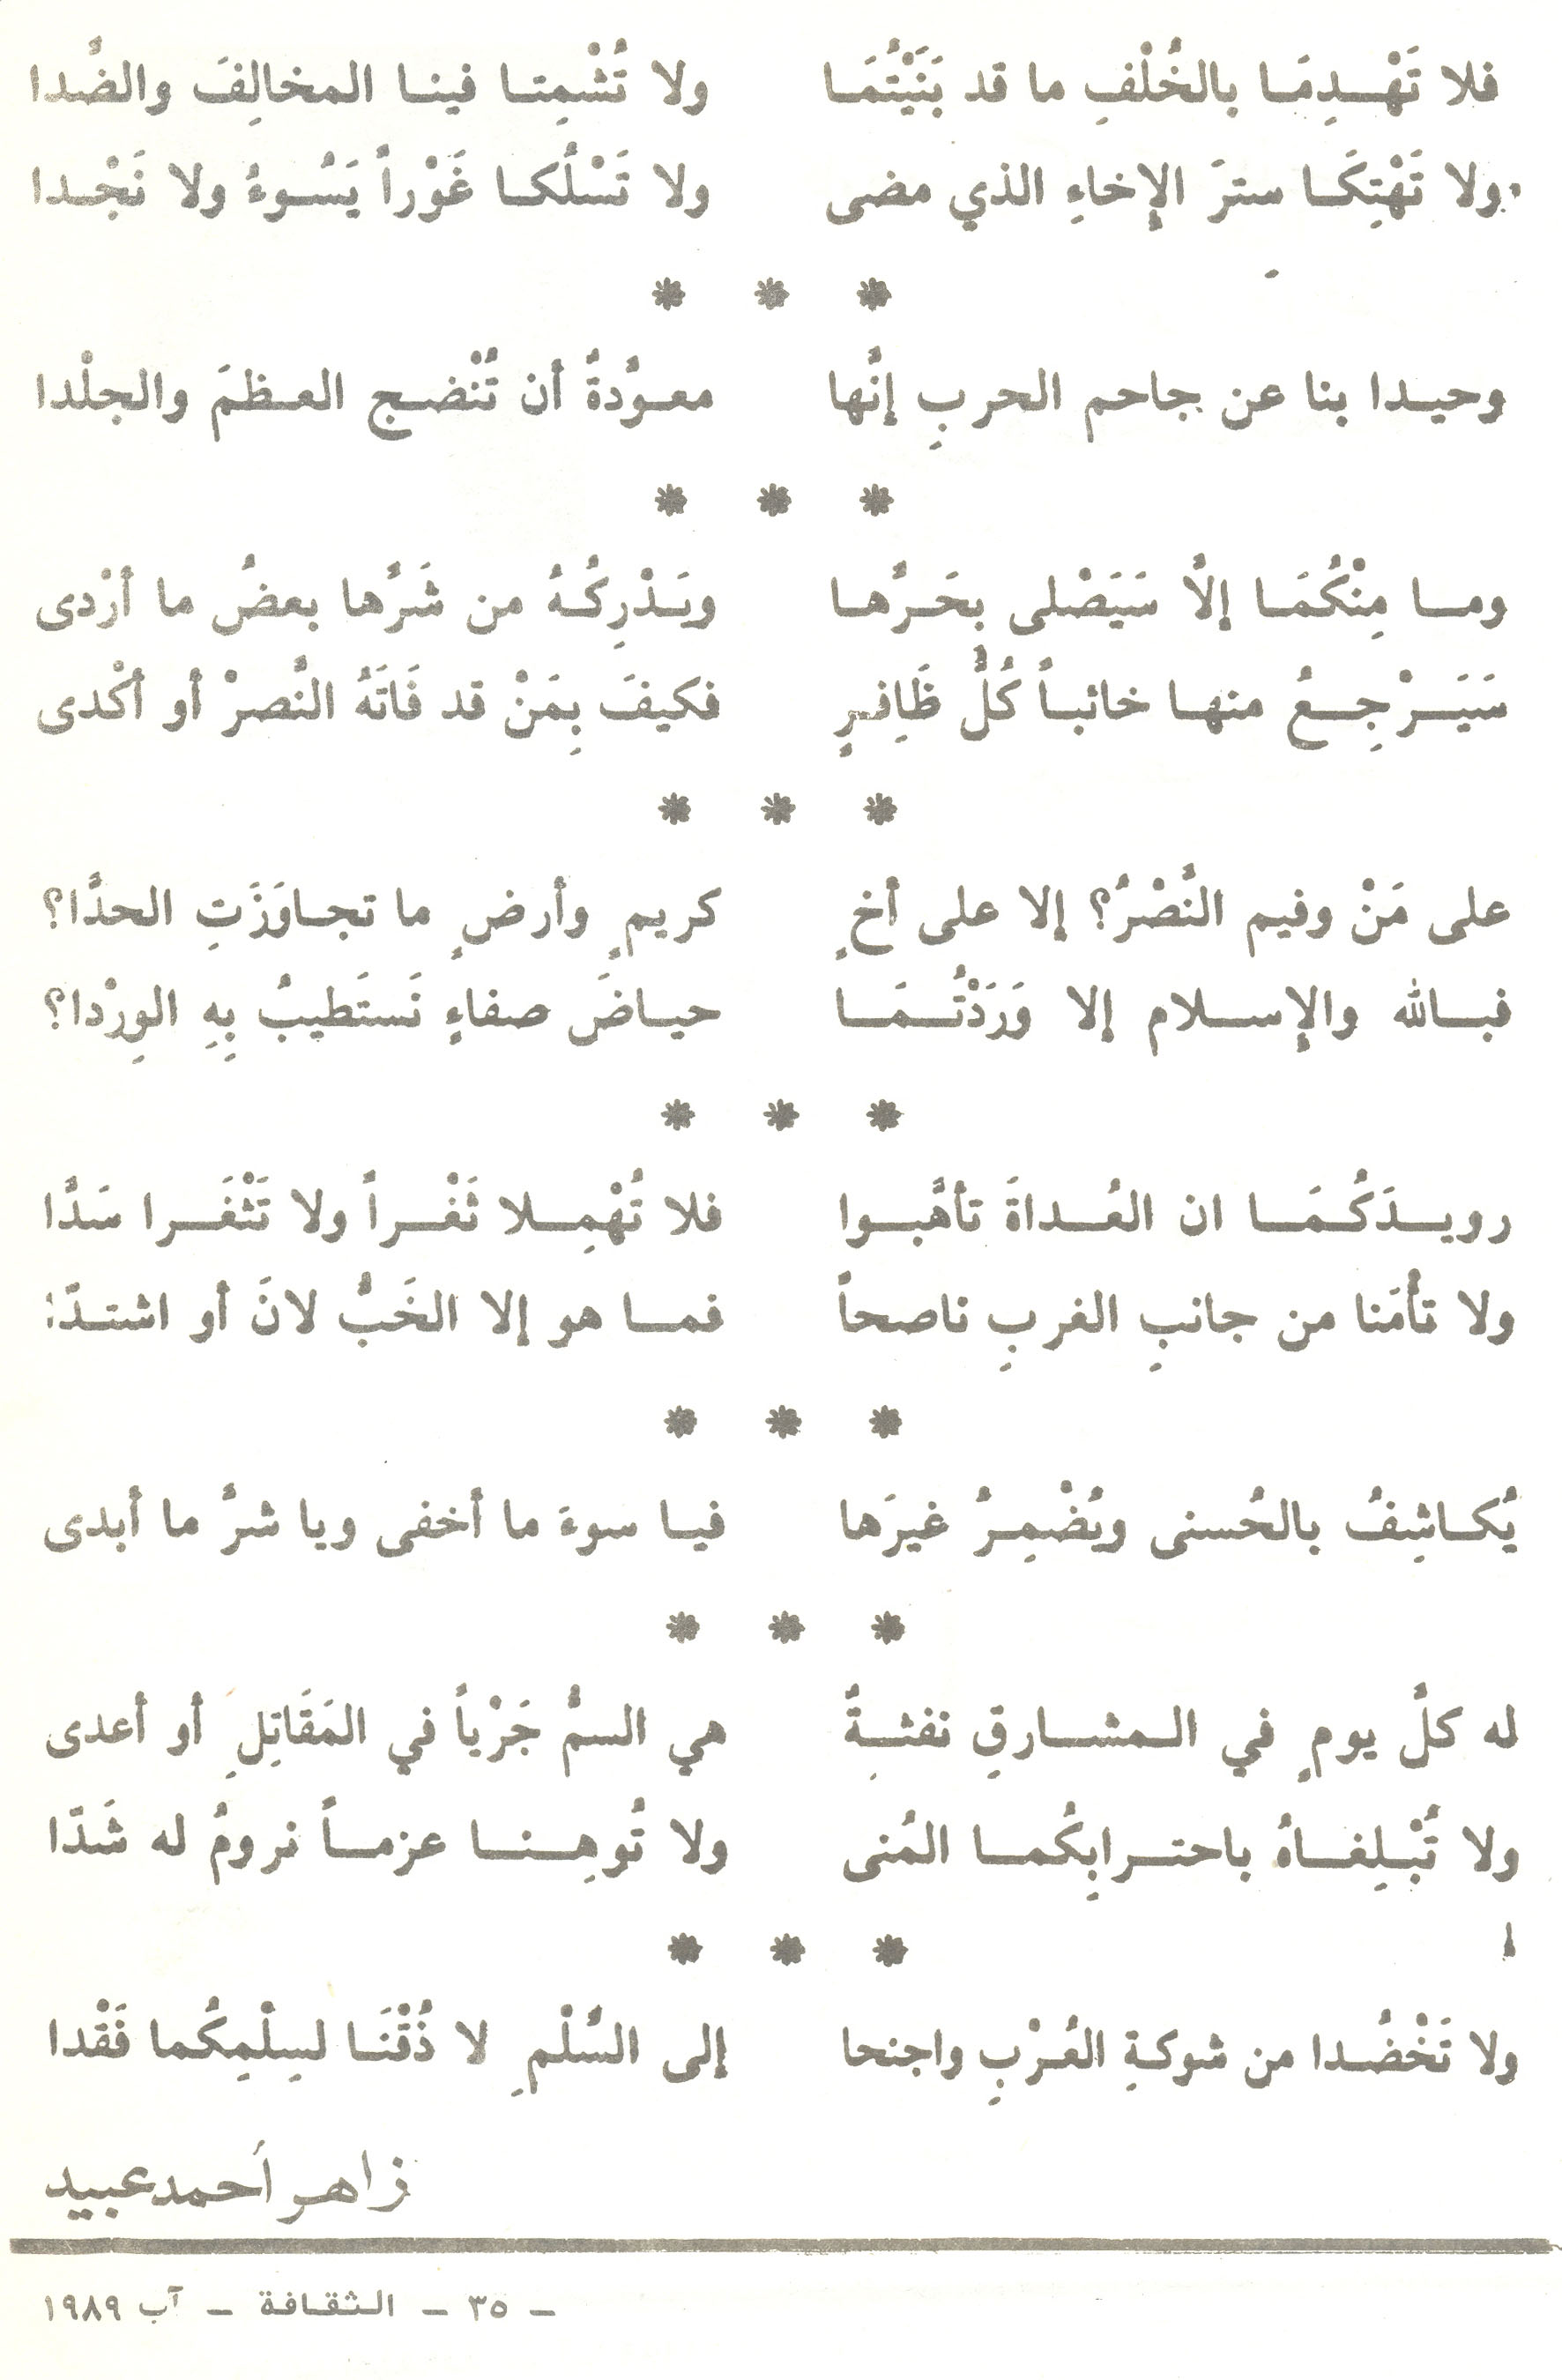 فلا تَهْدِمَا بالخُلْفِ ما قد بَنَيْتُمَا ولا تُشْمِتا فينا المخالِفَ والضِّدا
ولا تَهْتِكَا سترَ الإِخاءِ الذي مضى ولا تَسْلُكا غَوْراً يَسُوءُ ولا نَجْدا
* * *
وحيدا بنا عن جاحم الحربِ إنَّها معوَّدةٌ أن تُنْضج العظمَ والجلْدا
* * *
وما مِنْكُمَا إلاَّ سَيَصْلى بِحَرِّها ويَدْرِكُهُ من شَرِّها بعضُ ما أرْدى
سَيَرْجِعُ منها خائباً كُلُّ ظَافِرٍ فكيفَ بِمَنْ قد فَاتَهُ النَّصرْ أو أكْدى
* * *
على مَنْ وفيم النَّصْرُ؟ إلا على أخٍ كريمٍ وأرضٍ ما تجاوَزَتِ الحدَّا؟
فبالله والإِسلام إلا وَرَدْتُمَا حياضَ صفاءٍ نَستَطيبُ بِهِ الوِرْدا؟
* * *
رويدَكُمَا ان العُداةَ تأهَّبوا فلا تُهْمِلا ثَغْراً ولا تَثْغَرا سَدَّا
ولا تأمَنا من جانبِ الغربِ ناصحاً فما هو إلا الخَبُّ لانَ أو اشتدّا
* * *
يُكاشِفُ بالحُسنى ويُضْمِرُ غيرَها فيا سوءَ ما أخفى ويا شرَّ ما أبدى
* * *
له كلَّ يومٍ في المشارقِ نفثةٌ هي السمُّ جَرْياً في المَقَاتِلِ أو أعدى
ولا تُبْلِغاهُ باحترابِكُما المُنى ولا تُوهِنا عزماً نرومُ له شَدّا
* * *
ولا تَخْضُدا من شوكةِ العُرْبِ واجنحا إلى السِّلْمِ لا ذُقْنَا لسِلْمِكُما فَقْدا
زاهر أحمد عبيد
ـ ٣٥ ـ الثقافة ـ آب ١٩٨٩